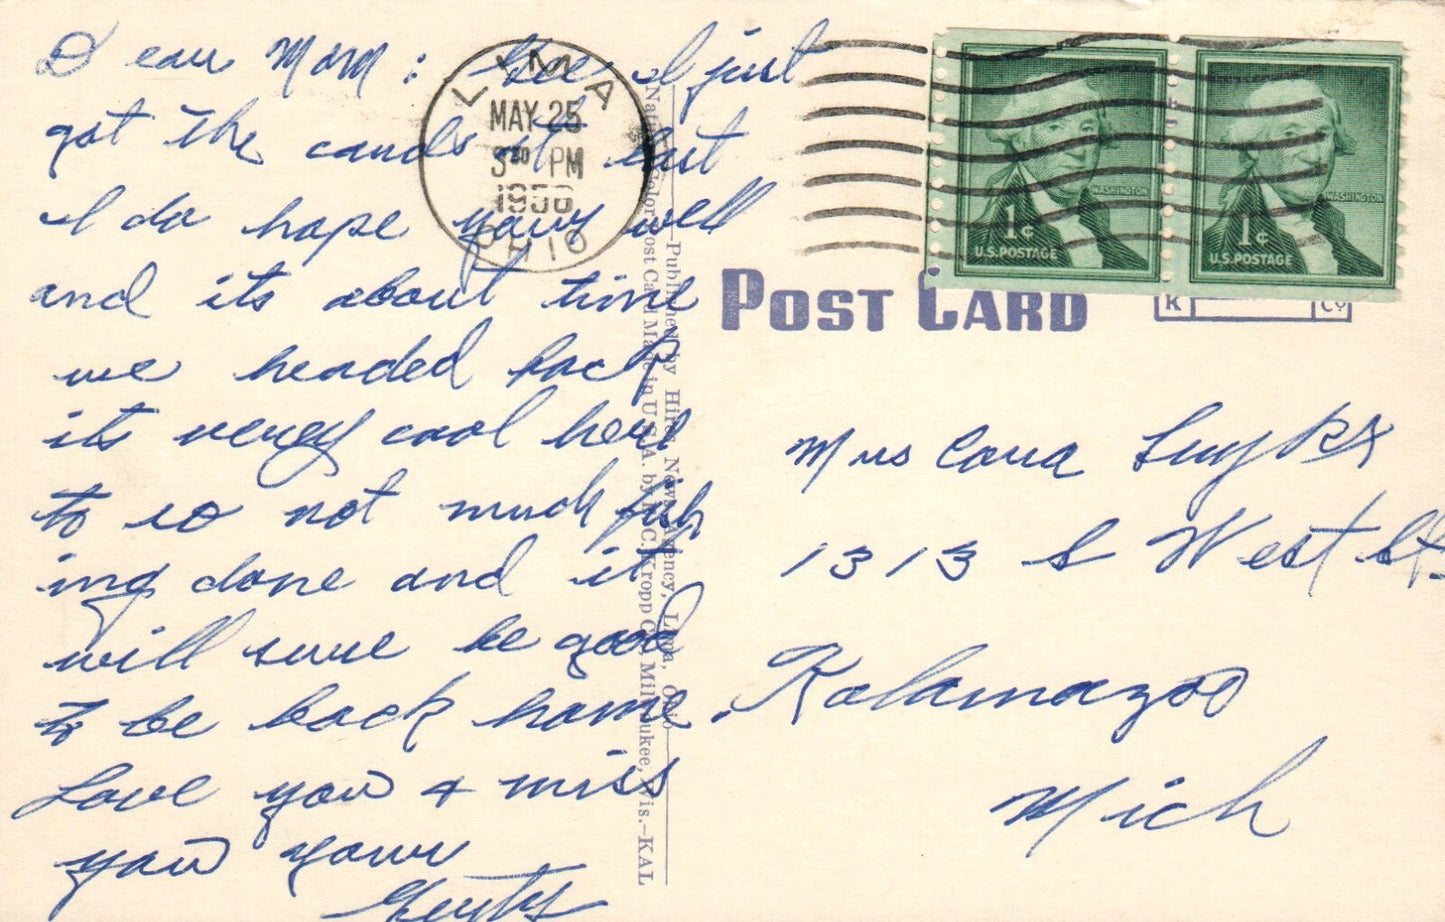 Dear Mom: Gee I just
got the cards at last
I do hope your well
and its about time
we headed back
its very cool here
to so not much fish
ing done and it
will sure be good
to be back home.
Love you & miss
you your
LIMA
MAY 25
3 30 PM
1956
OHIO
Published by Hiles News Agency, Lima, Ohio
Natural Color Post Card Made in U.S.A. by E. C. Kropp Co., Milwaukee, Wis.—KAL
WASHINGTON
1¢
U.S. POSTAGE
WASHINGTON
1¢
U.S. POSTAGE
POST CARD
K Co
Mrs Cora Luyks
1313 S West St.
Kalamazoo
Mich